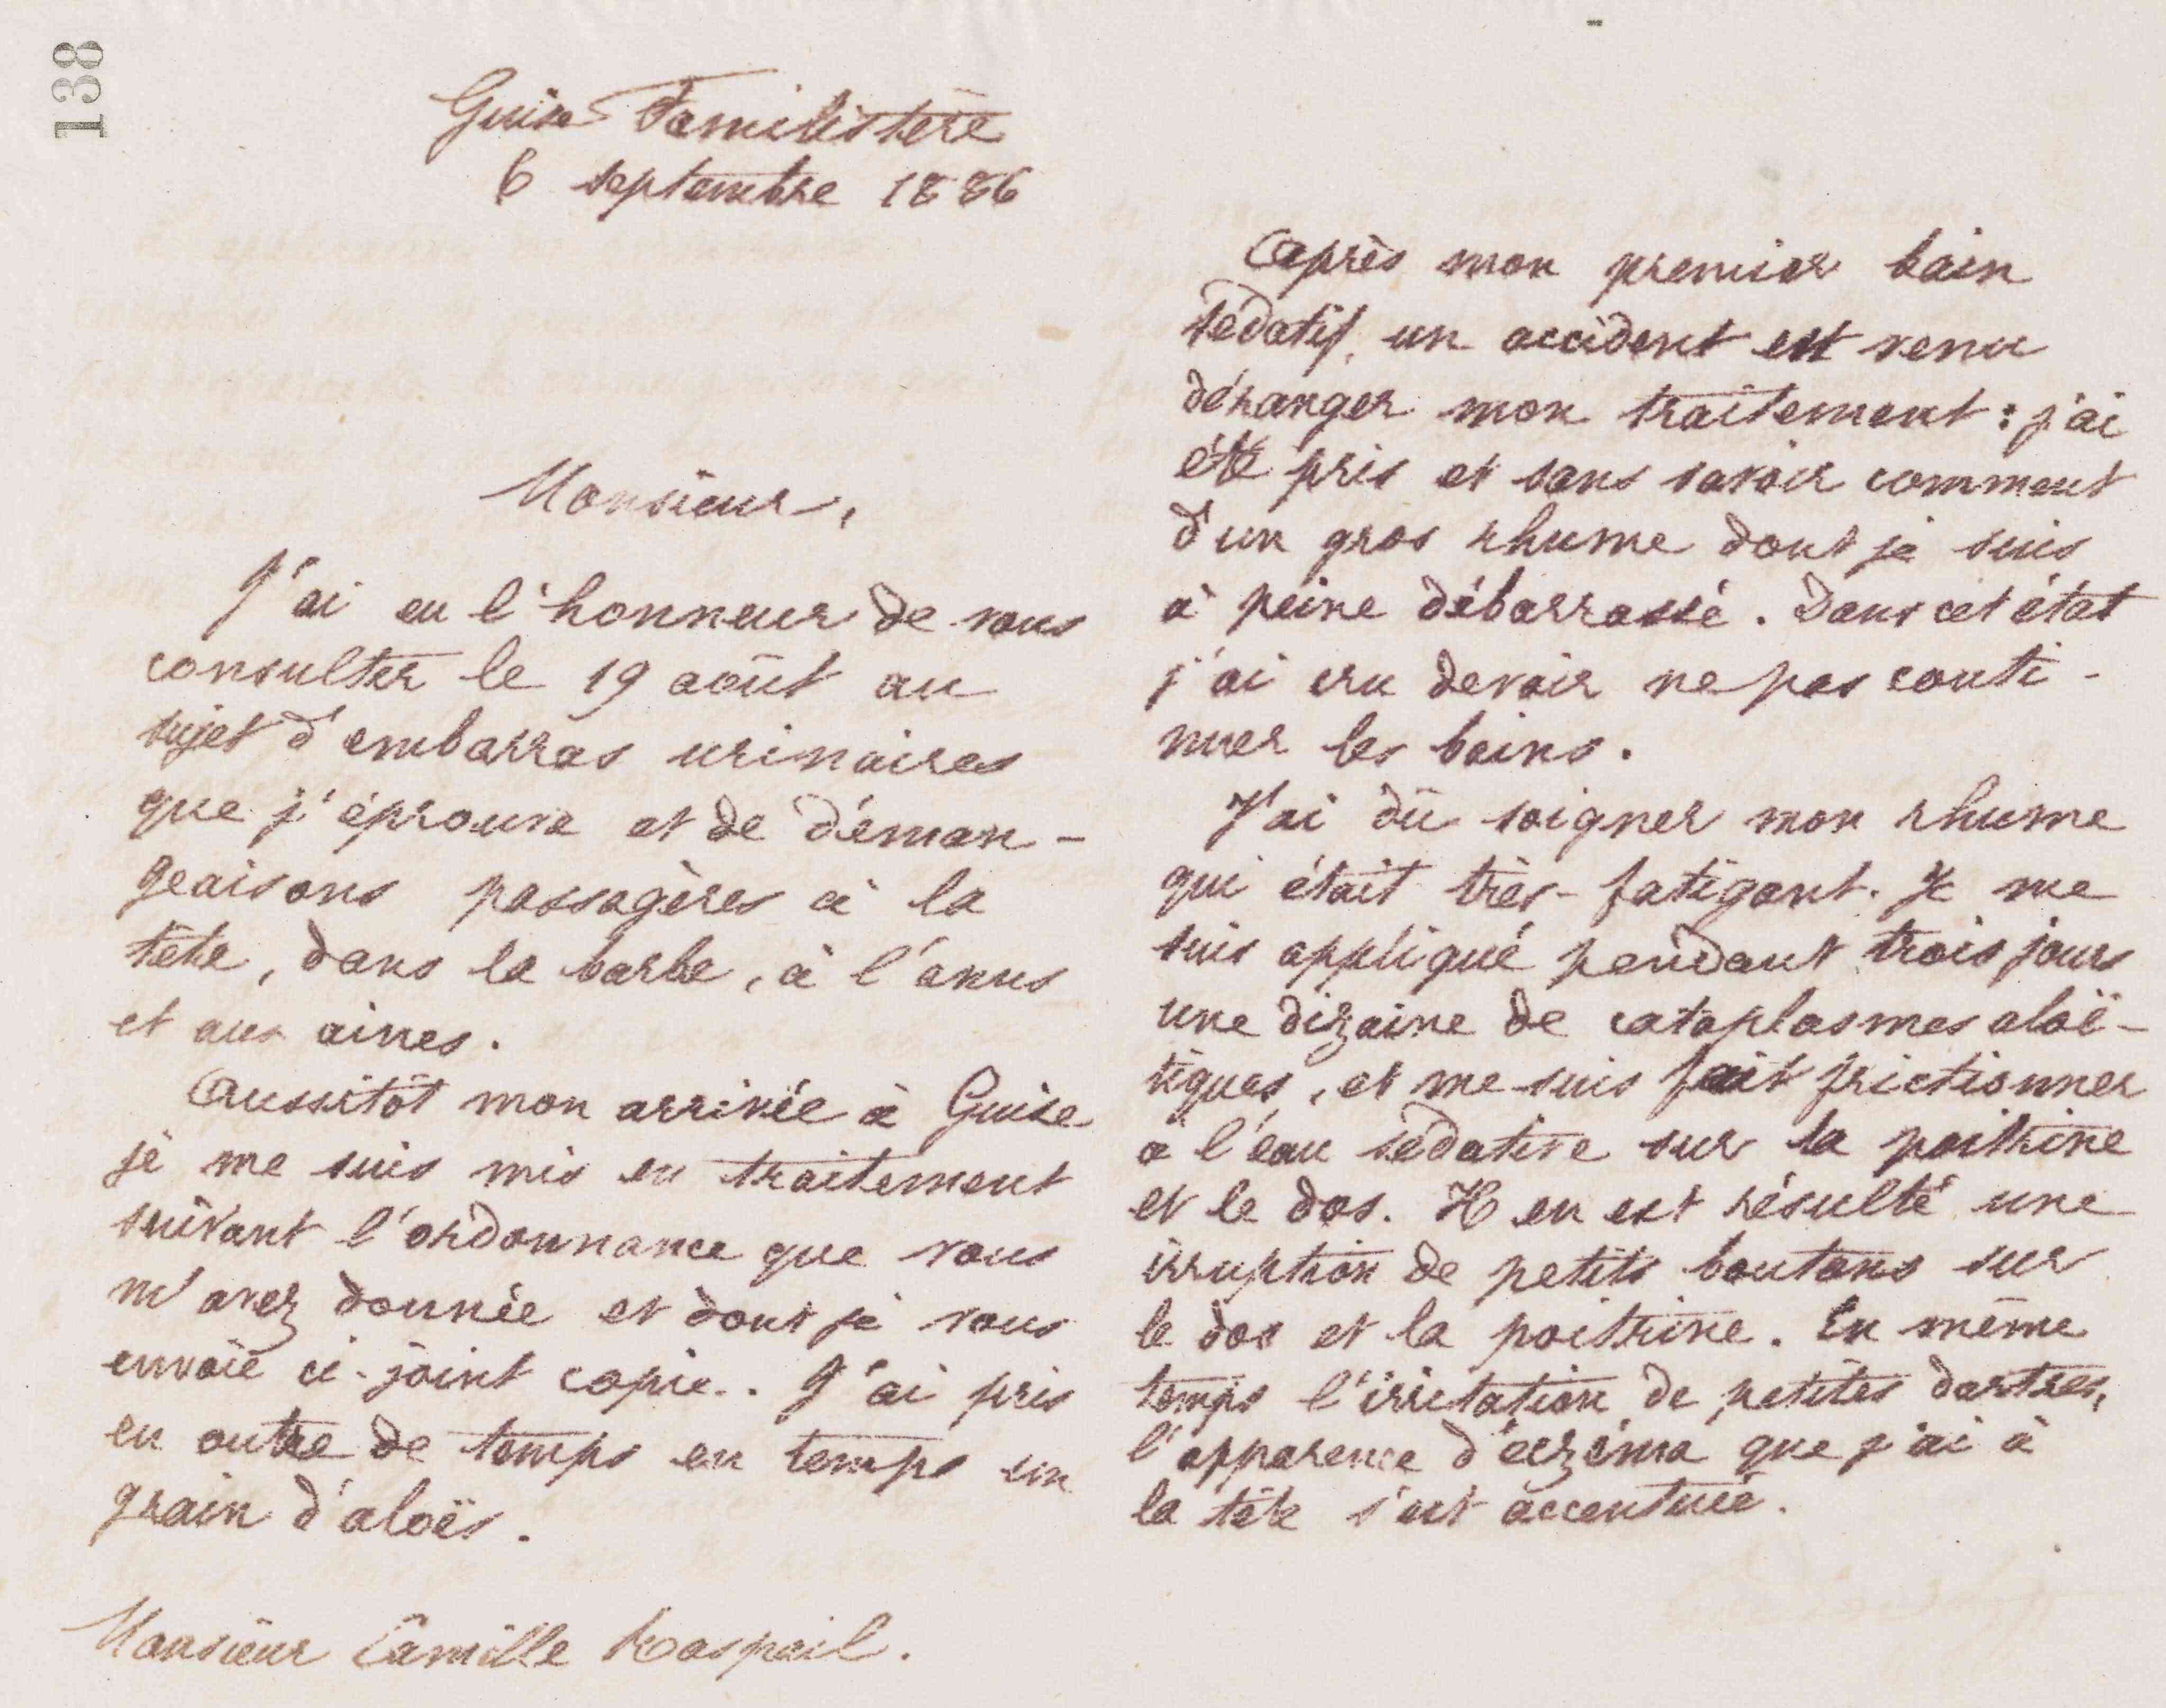 138
Guise Familistère
6 septembre 1886
Monsieur,
J'ai eu l'honneur de vous
consulter le 19 août au
sujet d'embarras urinaires
que j'éprouve et de déman-
geaisons passagères à la
tête, dans la barbe, à l'anus
et aux aines.
Aussitôt mon arrivée à Guise
je me suis mis en traitement
suivant l'ordonnance que vous
m'avez donnée et dont je vous
envoie ci-joint copie. J'ai pris
en outre de temps en temps un
grain d'aloës.
Monsieur Camille Raspail.
Après mon premier bain
sédatif, un accident est venu
déranger mon traitement : j'ai
été pris et sans savoir comment
d'un gros rhume dont je suis
à peine débarrassé. Dans cet état
j'ai cru devoir ne pas conti-
nuer les bains.
J'ai dû soigner mon rhume
qui était très-fatigant. Je me
suis appliqué pendant trois jours
une dizaine de cataplasmes aloë-
tiques, et me suis fait frictionner
a l'eau sédative sur la poitrine
et le dos. Il en est résulté une
irruption de petits boutons sur
le dos et la poitrine. En même
temps l'irritation de petites dartres,
l'apparence d'eczéma que j'ai à
la tête s'est accentuée.